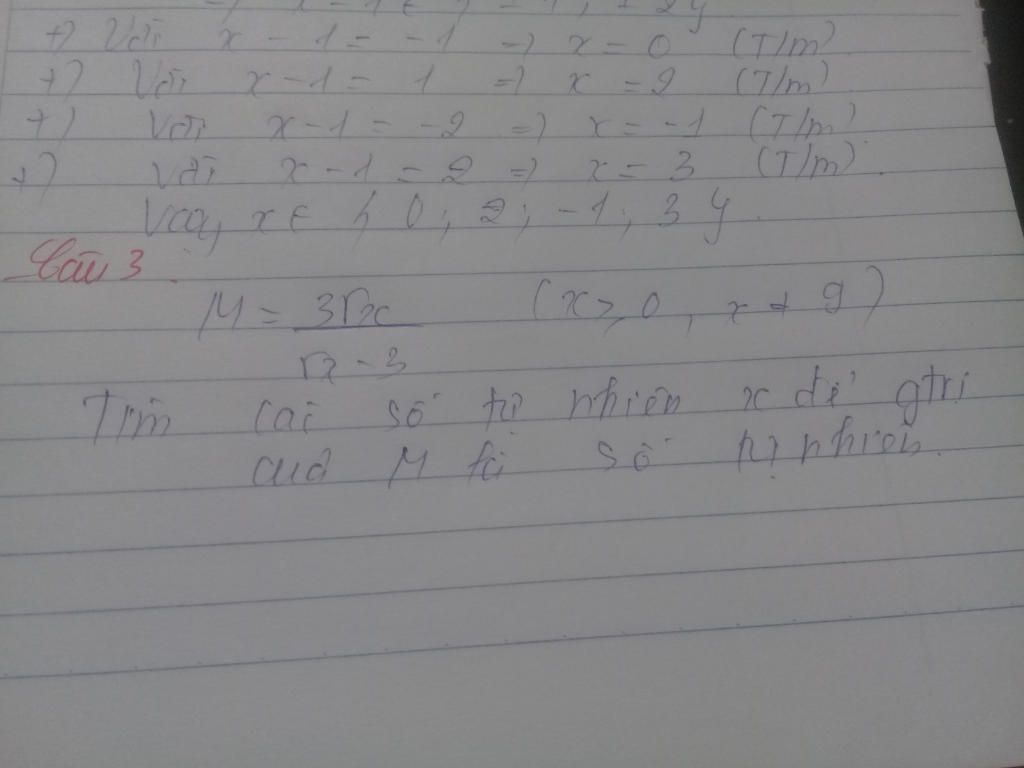 =) x - 1 ∈ { - 1, ± 2 }
+) Với x - 1 = -1 =) x = 0 (T/m)
+) Với x - 1 = 1 =) x = 2 (T/m)
+) Với x - 1 = -2 =) x = -1 (T/m)
+) Với x - 1 = 2 =) x = 3 (T/m).
Vậy x ∈ { 0 ; 2 ; -1 ; 3 }.
Câu 3.
M = 3√x / √x - 3 (x ≥ 0, x ≠ 9)
Tìm các số tự nhiên x để gtrị
của M là số tự nhiên.